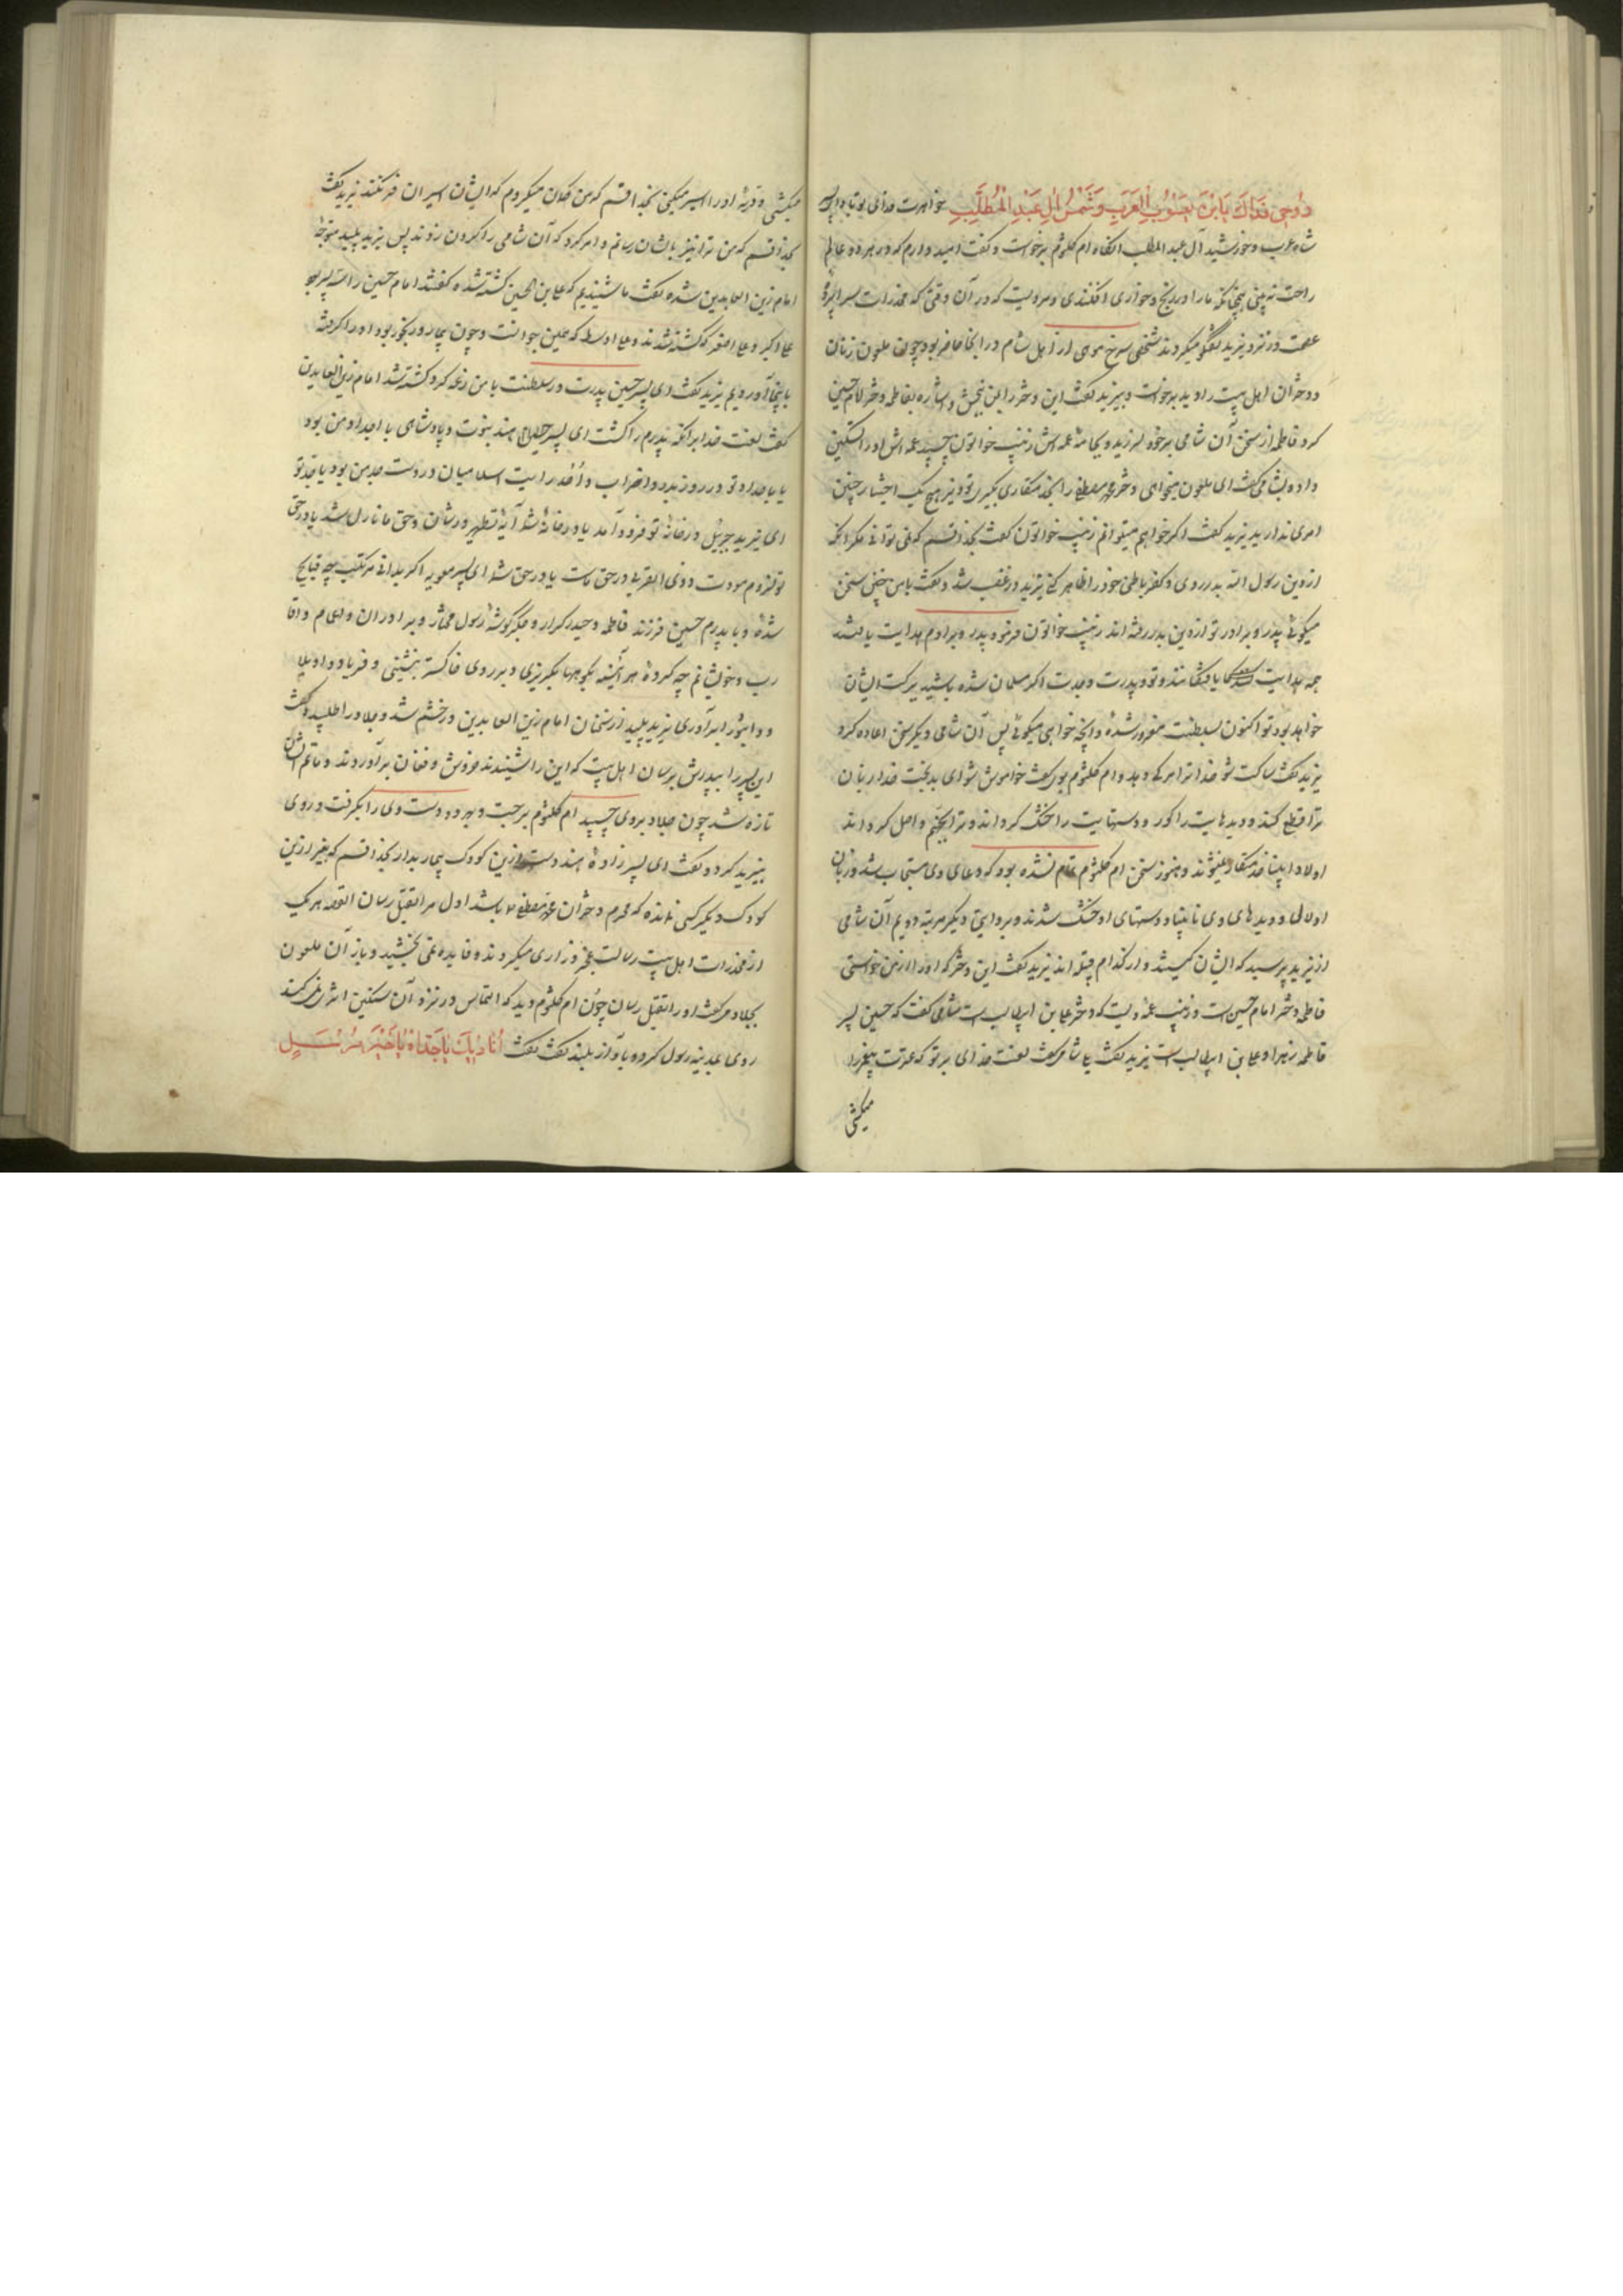 روحی فداک یا بن یعسوب العرب و شمس ال عبد المطلب خواهرت فدای تو باد ای
شاه عرب و خورشید آل عبد المطلب انکاه ام کلثوم برخواست و گفت امید وارم که در هر دو عالم
راحت نه بینی همچنانکه ما را در رنج و خواری افکندی و مرویست که در آن وقتی که مخدرات سراپردهٔ
عصمت در نزد یزید گفتگو میکردند شخصی سرخ موی از اهل شام در انجا حاضر بود چون ملعون زنان
و دختران اهل بیت را دید برخواست و بیزید گفت این دختر را بمن ببخش و اشاره بفاطمه دختر امام حسین
کرد فاطمه از سخن آن شامی بر خود لرزید و بجامهٔ عمه اش زینب خواتون چسپید عمه اش او را تسکین
داده بشامی گفت ای ملعون میخواهی دختر محمد مصطفی را بخدمتکاری بگیری تو و یزید هیچ یک اختیار چنین
امری ندارید یزید گفت اگر خواهم میتوانم زینب خواتون گفت بخدا قسم که نمی توانی مگر انکه
از دین رسول الله بدر روی و کفر باطن خود را ظاهر کنی یزید در غضب شد و گفت با من چنین سخن
میگوئی پدر و برادر تو از دین بدر رفته اند زینب خواتون فرمود پدر و برادرم هدایت یافتند
خواهد بود تو اکنون بسلطنت مغرور شدهٔ و انچه خواهی میگوئی پس آن شامی دیگر سخن اعاده کرد
یزید گفت ساکت شو خدا ترا مرک دهد و ام کلثوم بوی گفت خواموش شو ای بدبخت خدا زبان
ترا قطع کند و دیدهایت را کور و دستهایت را خشک گرداند و ترا بجهنم واصل گرداند
اولاد انبیا خدمتکار نمیشوند و هنوز سخن ام کلثوم تمام نشده بود که دعای وی مستجاب شد و زبان
او لال و دیدهای وی نابینا و دستهای او خشک شدند و بروایتی دیگر مرتبه دویم آن شامی
از یزید پرسید که ایشان کیستند و از کدام قبیله اند یزید گفت این دختر که او را از من خواستی
فاطمه دختر امام حسین است و زینب عمهٔ ویست که دختر علی بن ابیطالب است شامی گفت که حسین پسر
فاطمه زهرا و علی بن ابیطالب است یزید گفت بلی شامی گفت لعنت خدای بر تو که عترت پیغمبر را
میکشی
میکشی و ذریهٔ او را اسیر میکنی بخدا قسم که من گمان میکردم که ایشان اسیران فرنگند یزید گفت
بخدا قسم که من ترا نیز بایشان رسانم و امر کرد که آن شامی را گردن زدند پس یزید پلید متوجهٔ
امام زین العابدین شده گفت ما شنیدیم که علی بن الحسین کشته شده گفتند امام حسین را سه پسر بود
علی اکبر و علی اصغر که کشته شدند و علی اوسط که همین جوانست و چون بیمار و رنجور بود او را گرفته
باینجا آوردیم یزید گفت ای پسر حسین پدرت در سلطنت با من نزاع کرد و کشته شد امام زین العابدین
گفت لعنت خدا بر انکه پدرم را کشت ای پسر هند نبوت و پادشاهی با اجداد من بود
یا با اجداد تو و در روز بدر و احزاب و احد رایت اسلامیان در دست جد من بود یا جد تو
ای یزید جبریٔل در خانهٔ تو فرود آمد یا در خانهٔ ما آیهٔ تطهیر در شان و حق ما نازل شد یا در حق
تو لزوم مودت ذوی القربی در حق ماست یا در حق شما ای پسر معویه اگر بدانی مرتکب چه قبایح
شدهٔ و با پدرم حسین فرزند فاطمه و حیدر کرار و جگرگوشهٔ رسول مختار و برادران و اعمام و اقا
رب و خویشانم چه کردهٔ هر آینه بکوهها بگریزی و بر روی خاکستر بنشینی و فریاد واویلا
و واثبورا بر آوری یزید پلید از سخنان امام زین العابدین در خشم شد و جلاد را طلبید و گفت
این پسر را بپدرش برسان اهل بیت که این را شنیدند خروش و فغان بر آوردند و ماتم ایشان
تازه شد چون جلاد بروی چسپید ام کلثوم برجست و بهر دو دست وی را بگرفت و روی
بیزید کرد و گفت ای پسر زادهٔ هند دست ازین کودک بیمار بدار بخدا قسم که بغیر ازین
کودک دیگر کسی نمانده که محرم دختران محمد مصطفی باشد اول مرا بقتل رسان القصه هر یک
از مخدرات اهل بیت رسالت عجز و زاری میکردند و فایده نمی بخشید و باز آن ملعون
بجلاد میگفت او را بقتل رسان چون ام کلثوم دید که التماس در نزد آن سنگین اثر نمیکند
روی بمدینهٔ رسول کرد و بآواز بلند گفت انادیک یا جداه یا خیر مرسل